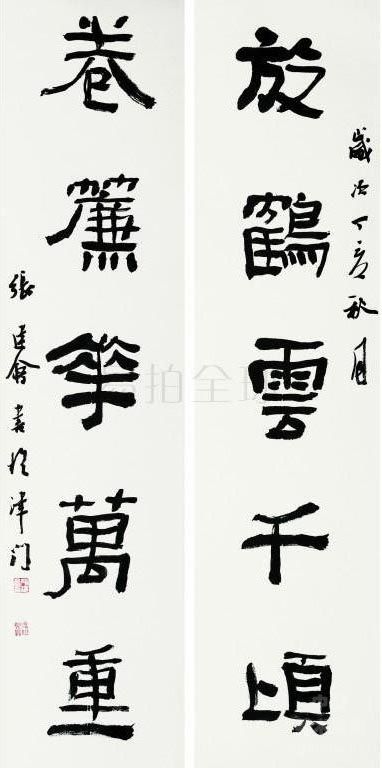 歲次丁亥秋月
放鶴雲千頃
卷簾華萬重
張建會書於津門
拍全球